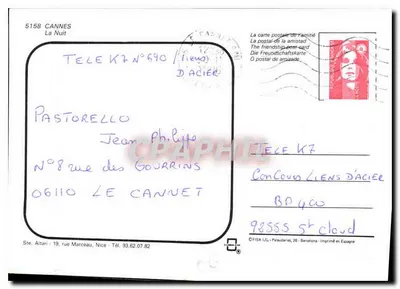 5158 CANNES
La Nuit
La carte postale de l'amitié
La postal de la amistad
The friendship post card
Die Freundschaftskarte
O postal de amizade
TELE K7 N°540 (Liens)
D'ACIER
PASTORELLO
Jean Philippe
N°8 rue des GOURRINS
06110 LE CANNET
TELE K7
ConCours LIENS D'ACIER
BP 400
92555 St Cloud
Ste. Altari - 19, rue Marceau, Nice - Tél. 93.62.07.82
Barcelona - Imprimé en Espagne